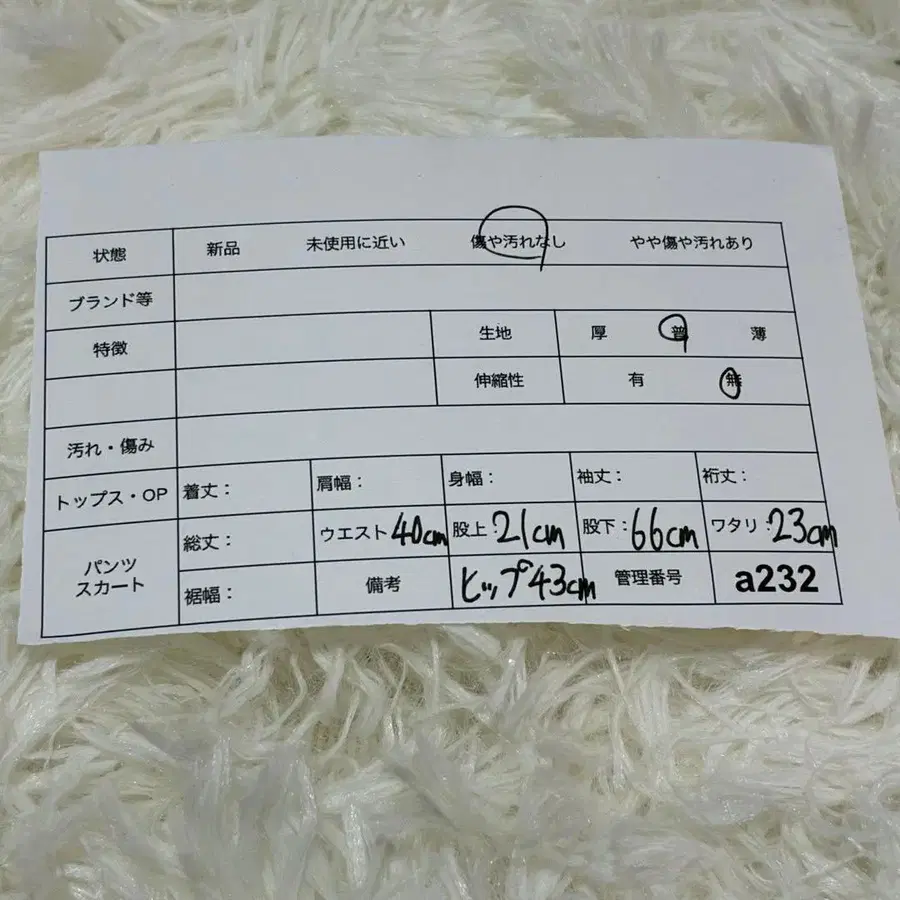 状態 新品 未使用に近い 傷や汚れなし やや傷や汚れあり
ブランド等
特徴 生地 厚 普 薄
伸縮性 有 無
汚れ・傷み
トップス・OP 着丈： 肩幅： 身幅： 袖丈： 裄丈：
パンツ スカート 総丈： ウエスト 40cm 股上：21cm 股下：66cm ワタリ：23cm
裾幅： 備考 ヒップ43cm 管理番号 a232